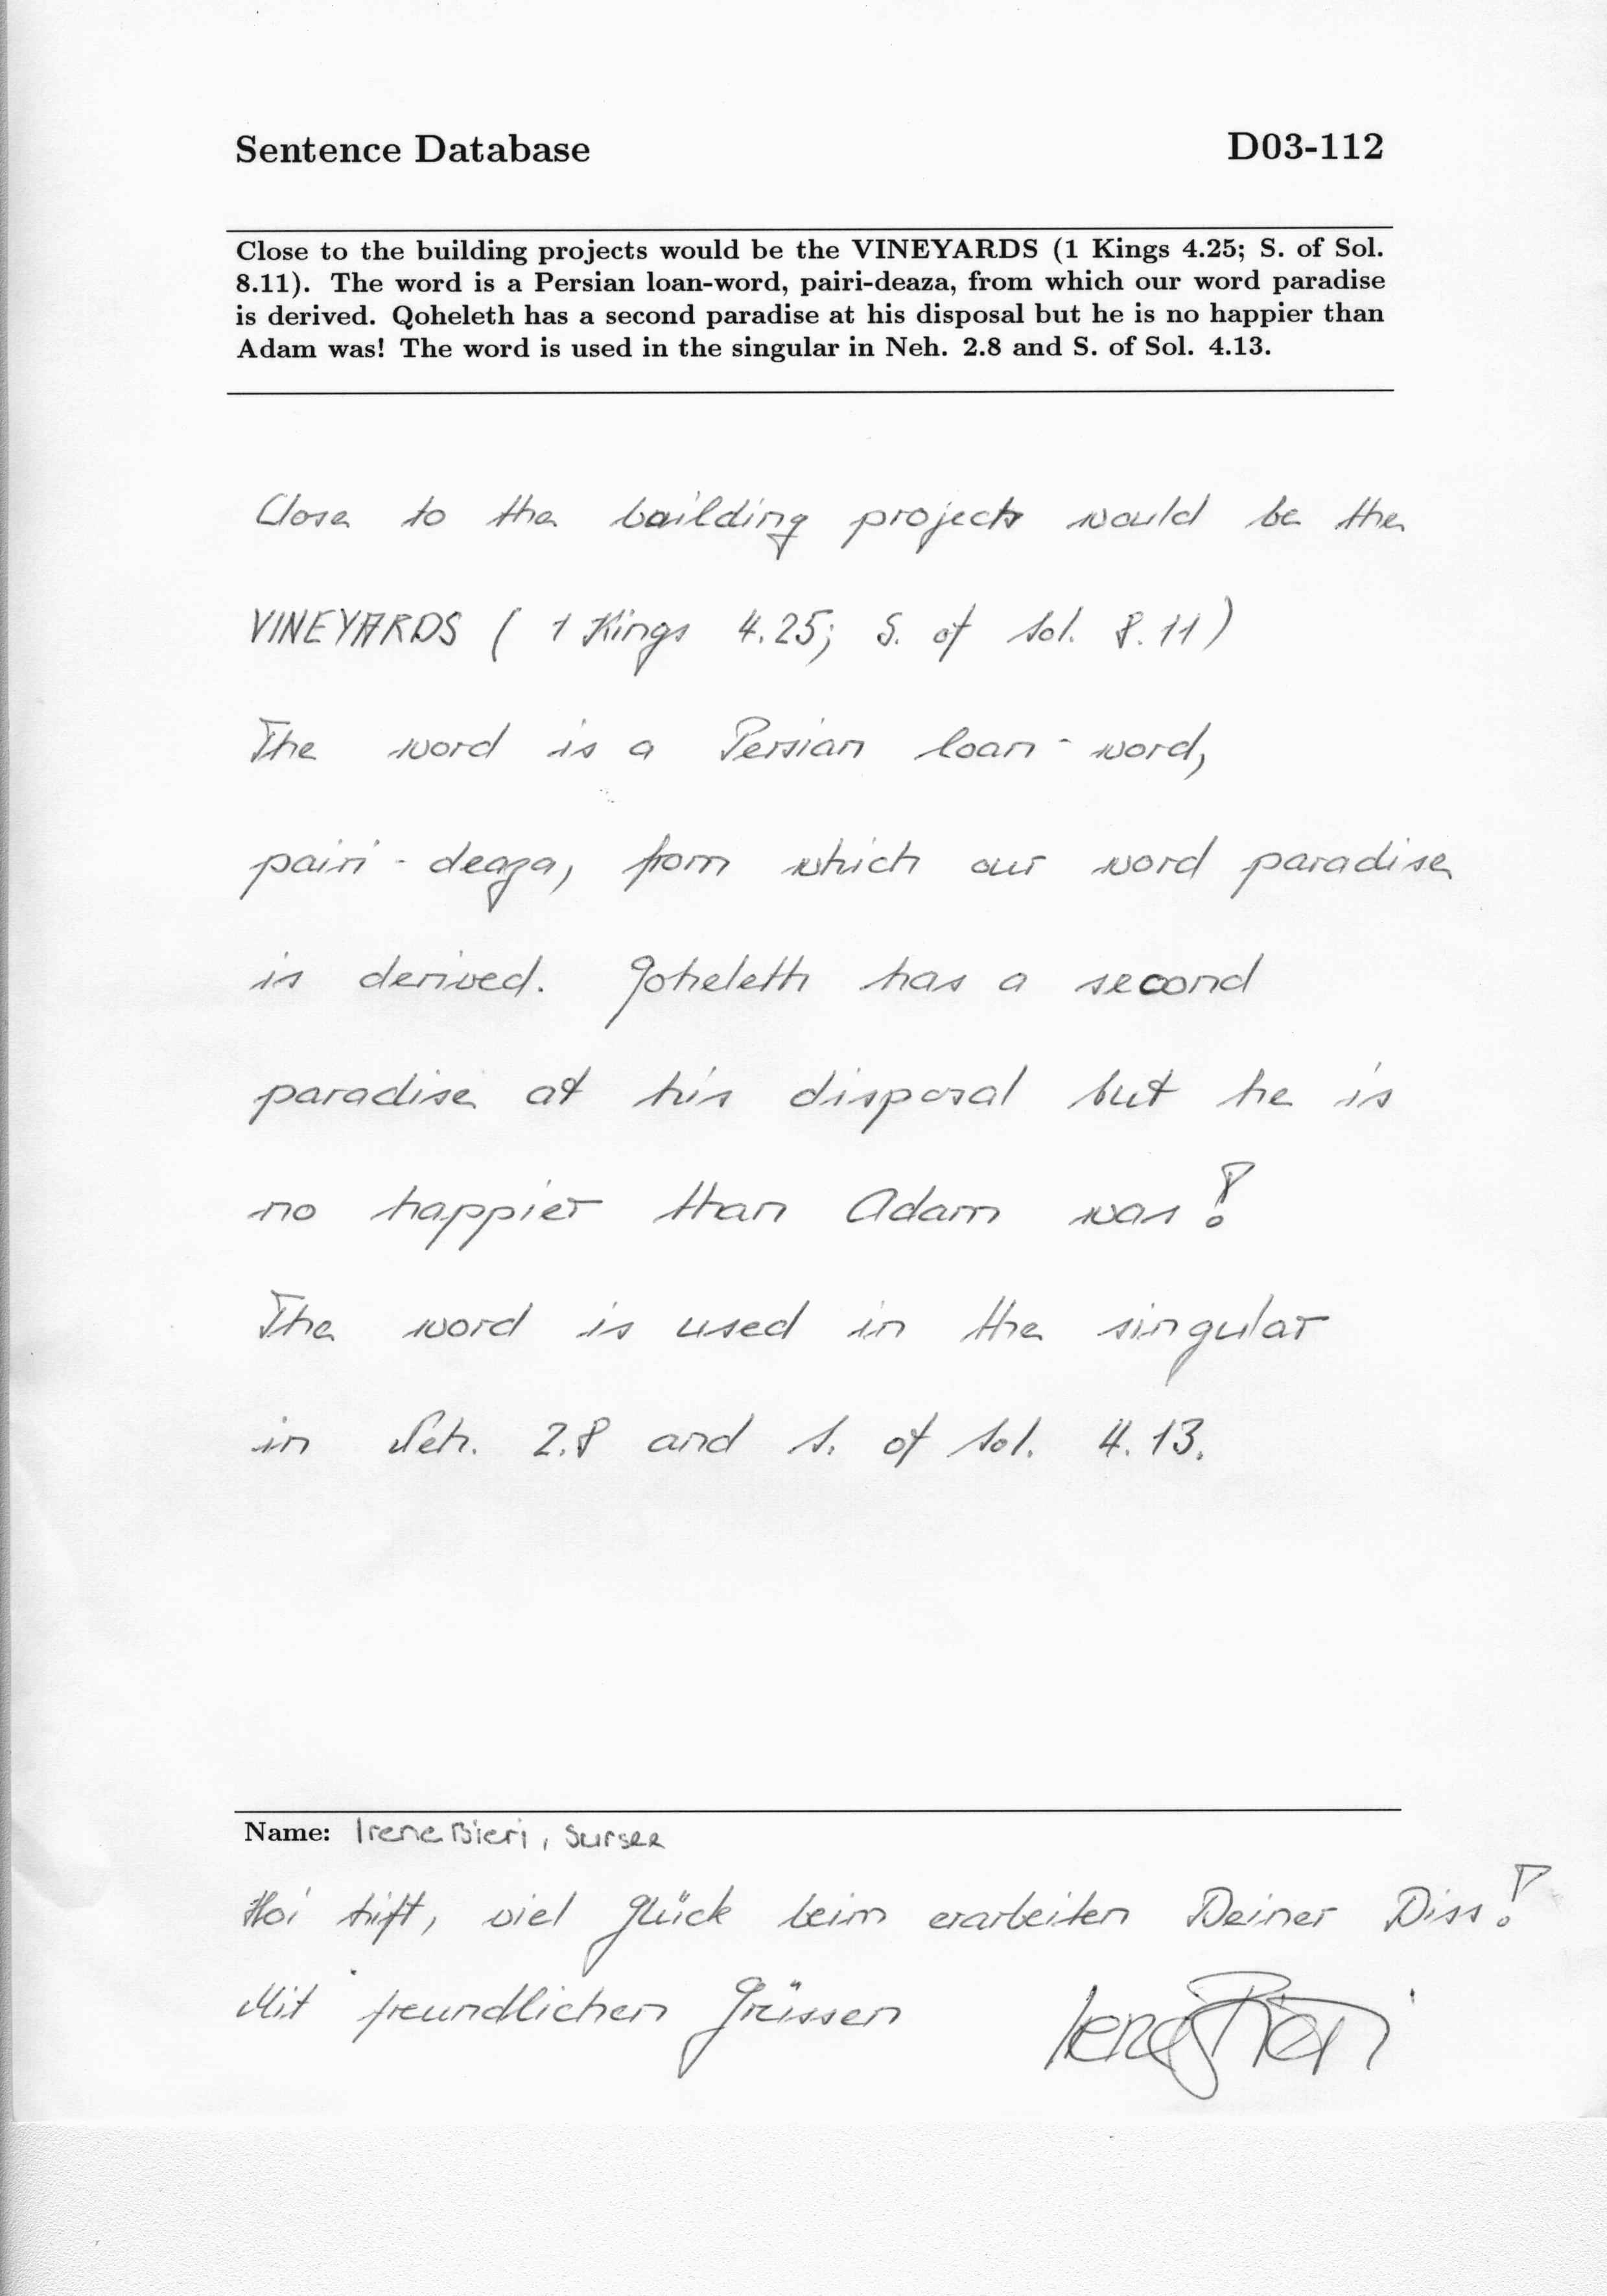 Sentence Database D03-112
Close to the building projects would be the VINEYARDS (1 Kings 4.25; S. of Sol.
8.11). The word is a Persian loan-word, pairi-deaza, from which our word paradise
is derived. Qoheleth has a second paradise at his disposal but he is no happier than
Adam was! The word is used in the singular in Neh. 2.8 and S. of Sol. 4.13.
Close to the building projects would be the
VINEYARDS ( 1 Kings 4.25; S. of Sol. 8.11)
The word is a Persian loan - word,
pairi - deaza, from which our word paradise
is derived. Qoheleth has a second
paradise at his disposal but he is
no happier than Adam was!
The word is used in the singular
in Neh. 2.8 and S. of Sol. 4.13.
Name: Irene Bieri, Sursee
Hoi viel Glück beim erarbeiten Deiner Diss!
Mit freundlichen Grüssen Irene Bieri